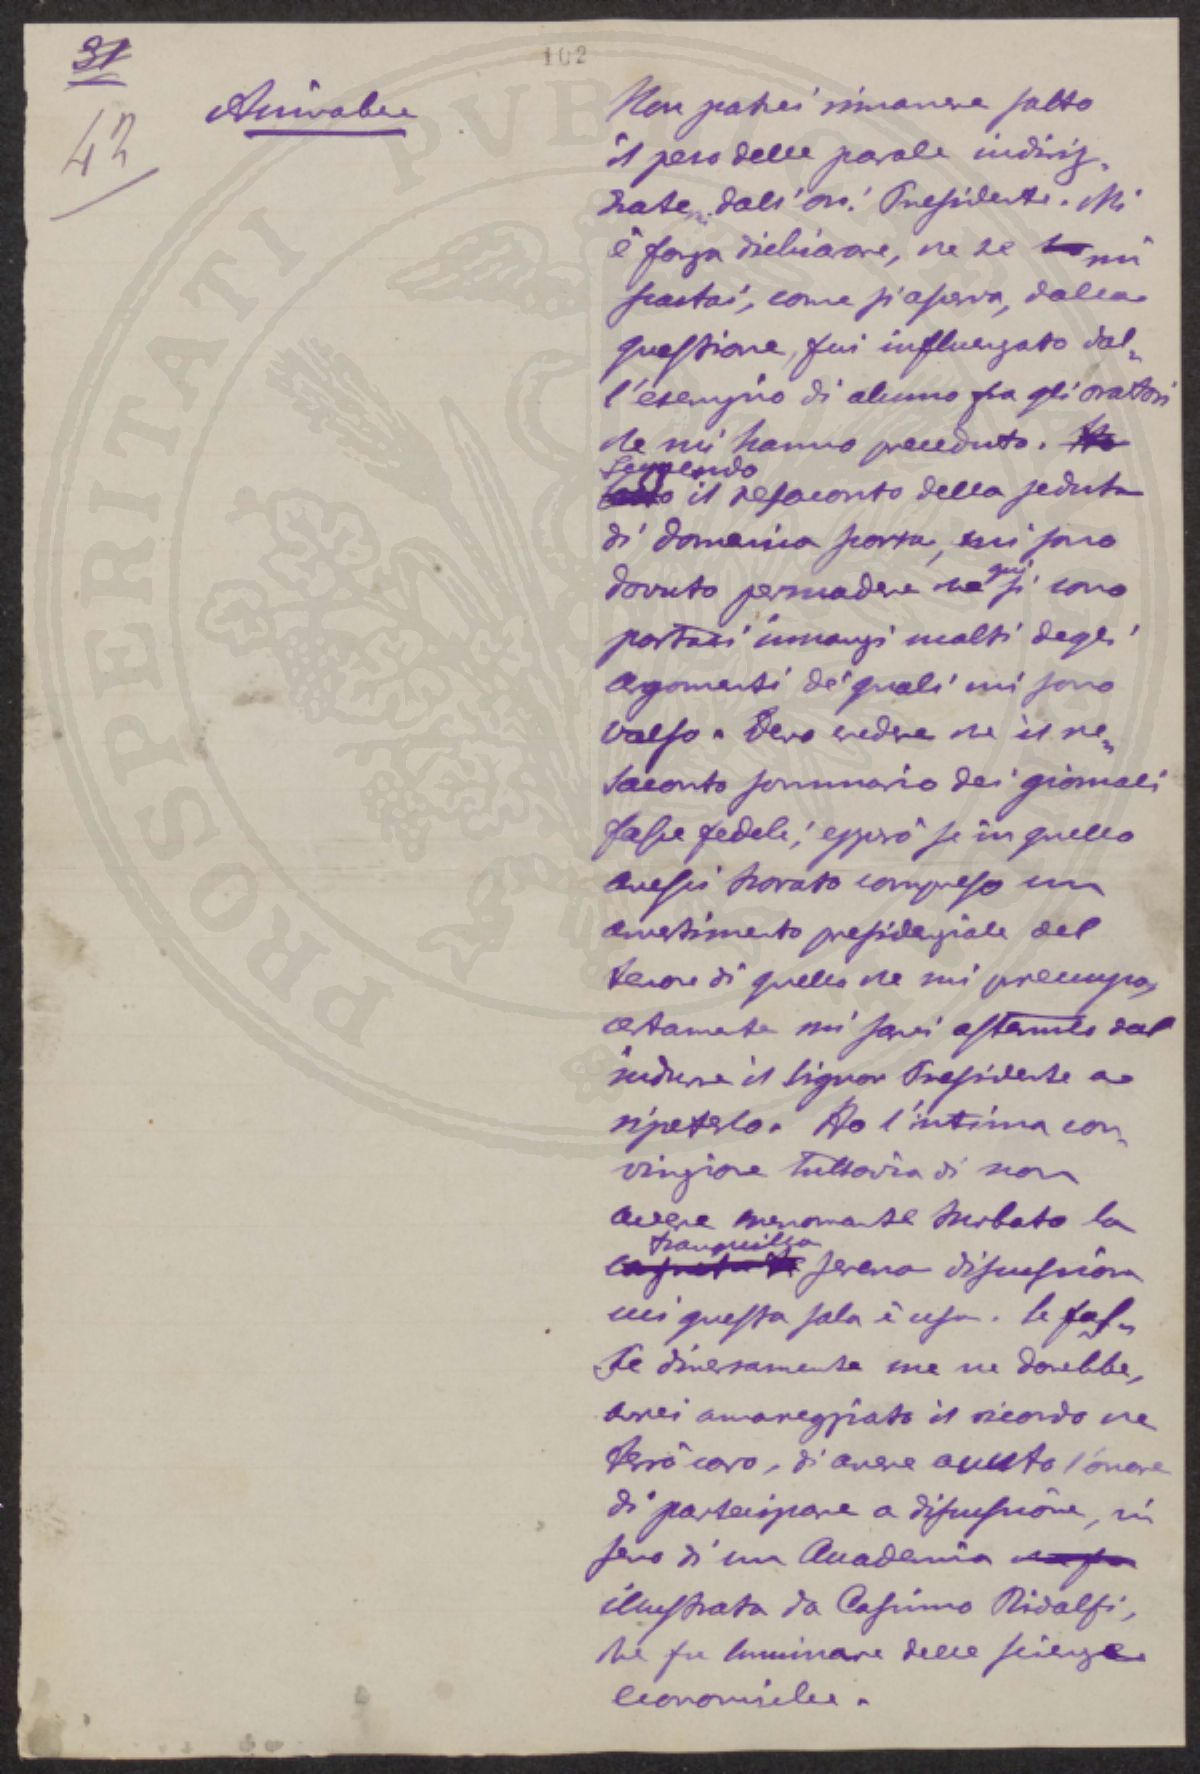 31
102
42
Non potrei rimanere sotto
il peso delle parole indiriz-
zate dall'on. Presidente. Mi
è forza dichiarare, che se mi
scostai, come si asserva, dalla
questione, fui influenzato dal-
l'esempio di alcuno fra gli oratori
che mi hanno preceduto. Ho
Leggendo
il resoconto della seduta
di domenica scorsa, mi sono
dovuto persuadere che qui si sono
portati innanzi molti degli
argomenti de' quali mi sono
valso. Devo credere che il re-
soconto sommario dei giornali
fosse fedele; epperò se in quello
avessi trovato compreso un
avvertimento presidenziale del
tenore di quello che mi preoccupa,
certamente mi sarei astenuto dal
indurre il Signor Presidente a
ripeterlo. Ho l'intima con-
vinzione tuttavia di non
avere menomante turbato la
tranquilla
serena discussione
cui questa sala è usa. Se fos-
se diversamente me ne dorebbe,
avrei amareggiato il ricordo che
terrò caro, di avere avuto l'onore
di partecipare a discussione, in
seno di un Accademia
illustrata da Cosimo Ridolfi,
che fu luminare delle scienze
economiche.
PROSPERITATI PVBLICAE